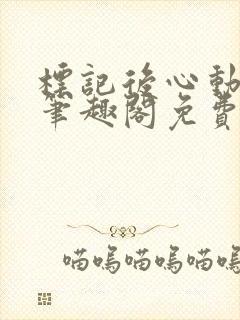 標記後心動
筆趣閣免費
喵嗚喵嗚喵嗚